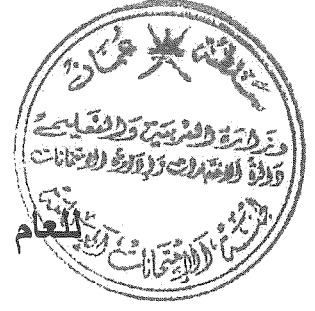 سلطنة عمان
وزارة التربية والتعليم
دائرة الاختبارات وإدارة الامتحانات
الامتحانات
للعام